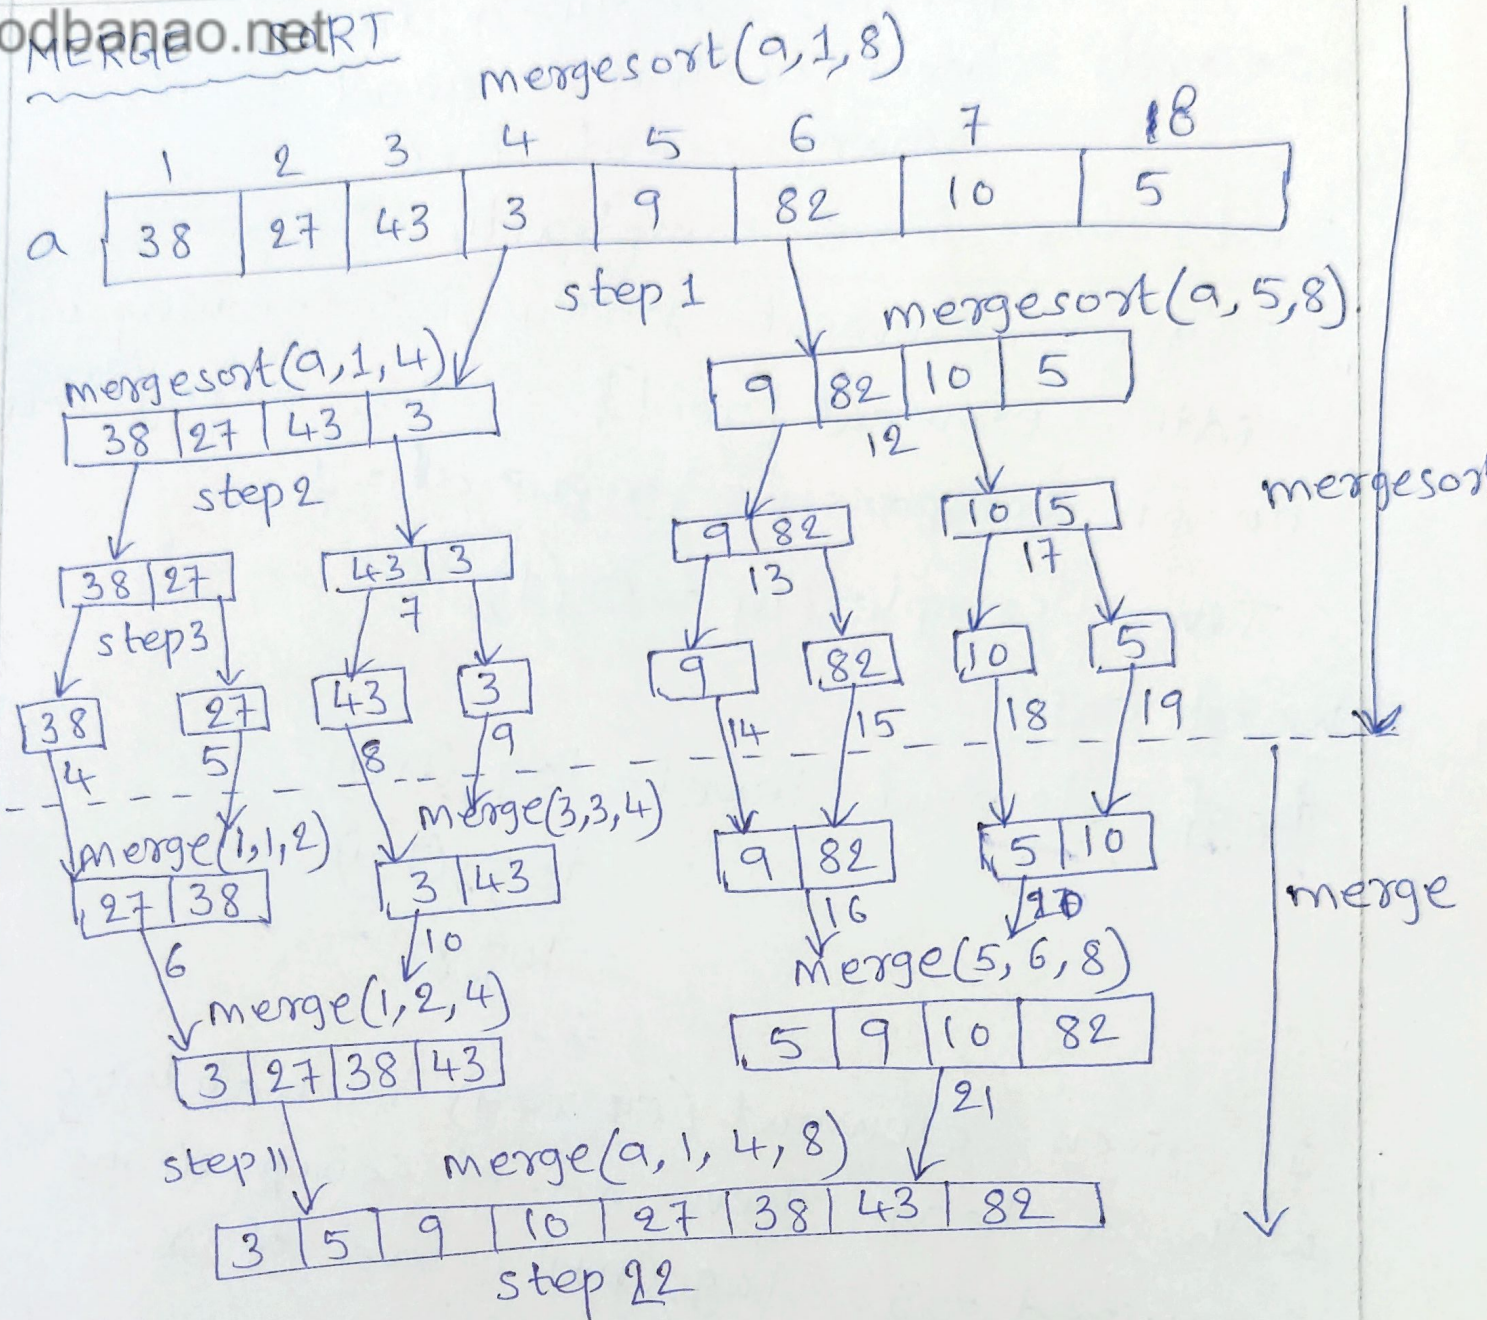 odbanao.net
MERGE SORT
mergesort(a,1,8)
1 2 3 4 5 6 7 8
a 38 27 43 3 9 82 10 5
step 1
mergesort(a,1,4) mergesort(a,5,8)
38 27 43 3 9 82 10 5
step 2 12
mergesort
38 27 43 3 9 82 10 5
step 3 7 13 17
38 27 43 3 9 82 10 5
4 5 8 9 14 15 18 19
merge(1,1,2) merge(3,3,4)
27 38 3 43 9 82 5 10
merge
6 10 16 20
merge(1,2,4) merge(5,6,8)
3 27 38 43 5 9 10 82
step 11 21
merge(a,1,4,8)
3 5 9 10 27 38 43 82
step 22